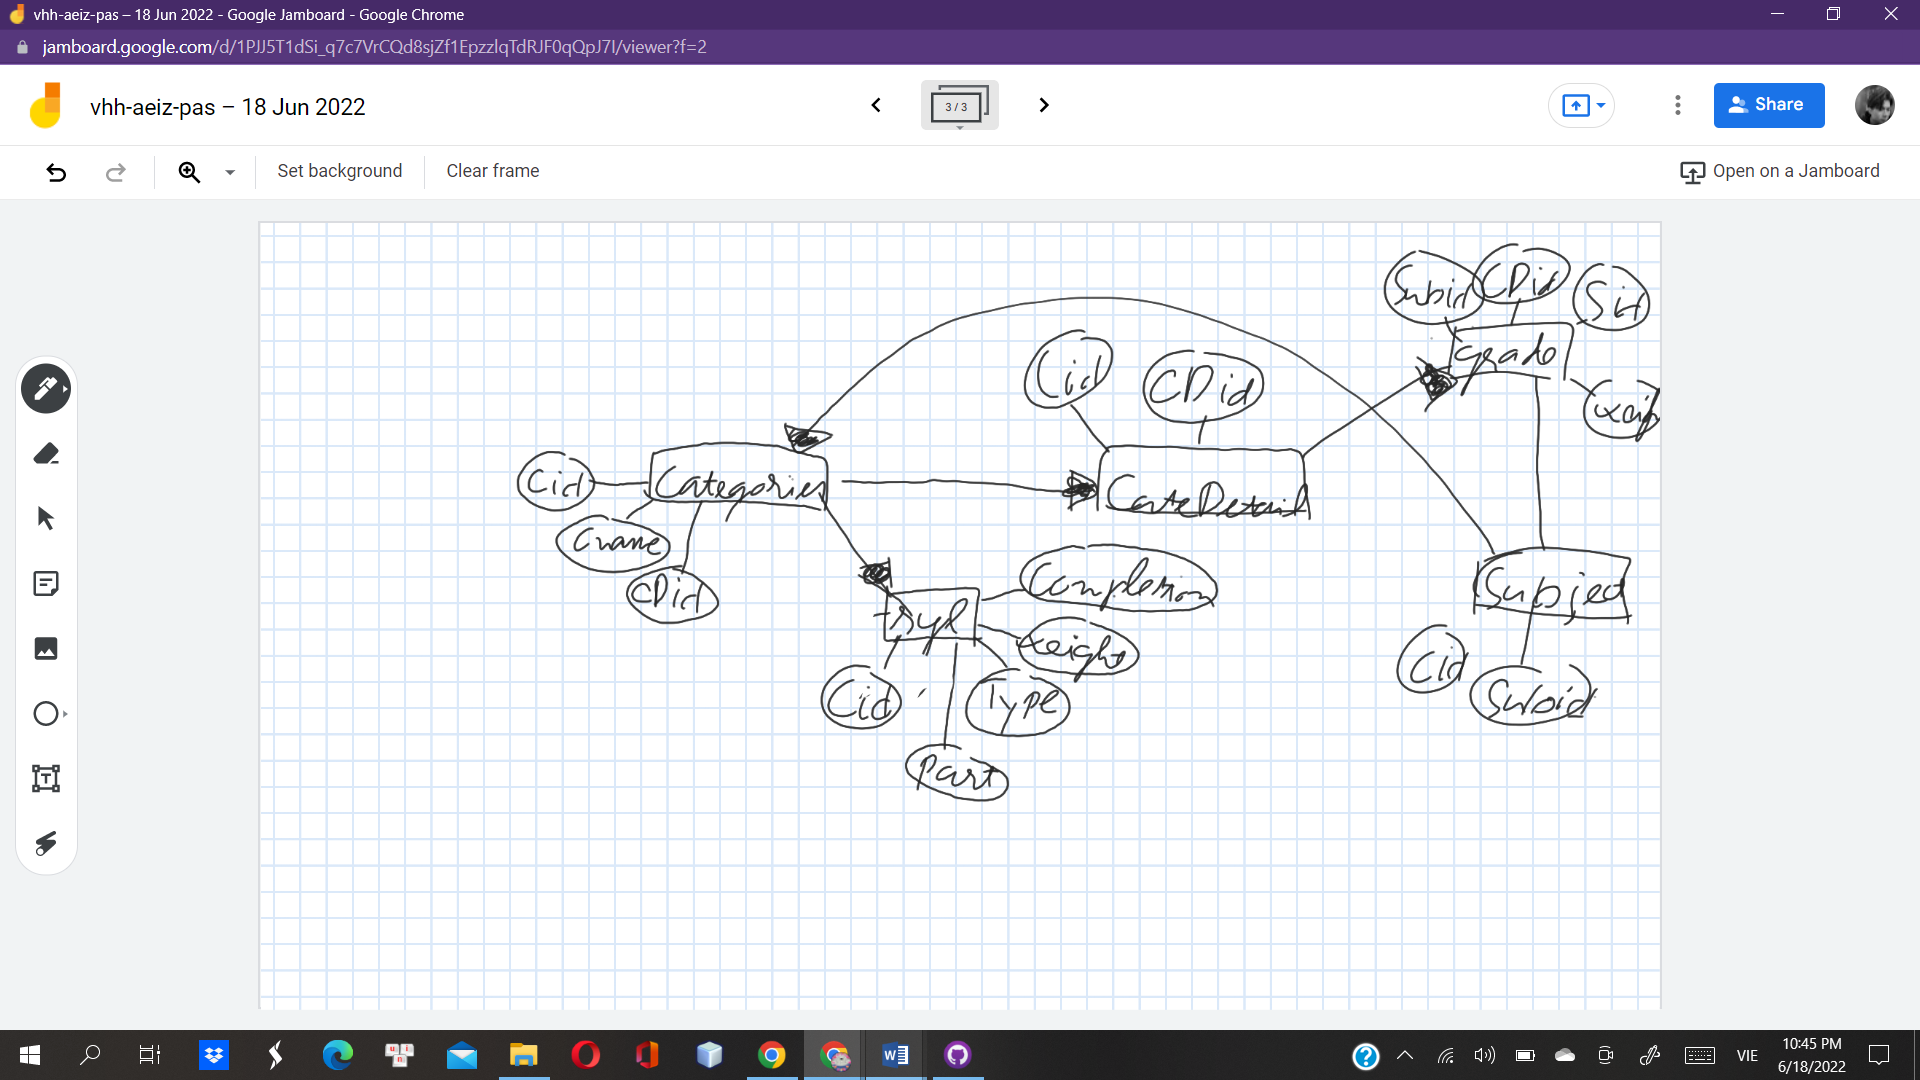 vhh-aeiz-pas – 18 Jun 2022 - Google Jamboard - Google Chrome
jamboard.google.com/d/1PJJ5T1dSi_q7c7VrCQd8sjZf1EpzzlqTdRJF0qQpJ7I/viewer?f=2
vhh-aeiz-pas – 18 Jun 2022
3 / 3
Share
Set background
Clear frame
Open on a Jamboard
Subid
CDid
Sid
grade
Cid
CDid
Cid
Categories
CateDetail
Cname
CDid
Completion
Subject
weight
Cid
Cid
Type
Subid
Part
VIE
10:45 PM
6/18/2022